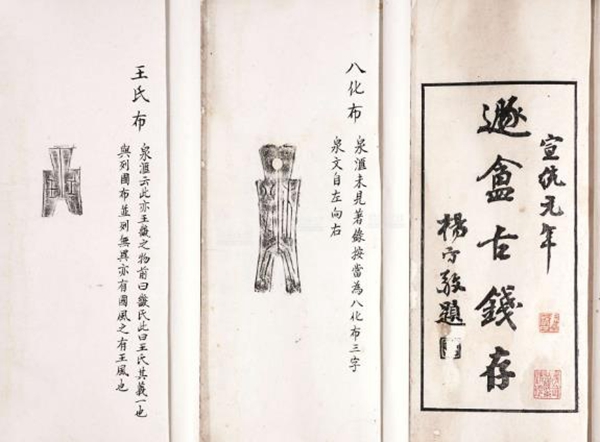 宣統元年
遯盦古錢存
楊守敬題
八化布
泉滙未見著錄按當為八化布三字
泉文自左向右
王氏布
泉滙云此亦王畿之物前曰畿氏此曰王氏其義一也
與列國布並列無異亦有國風之有王風也